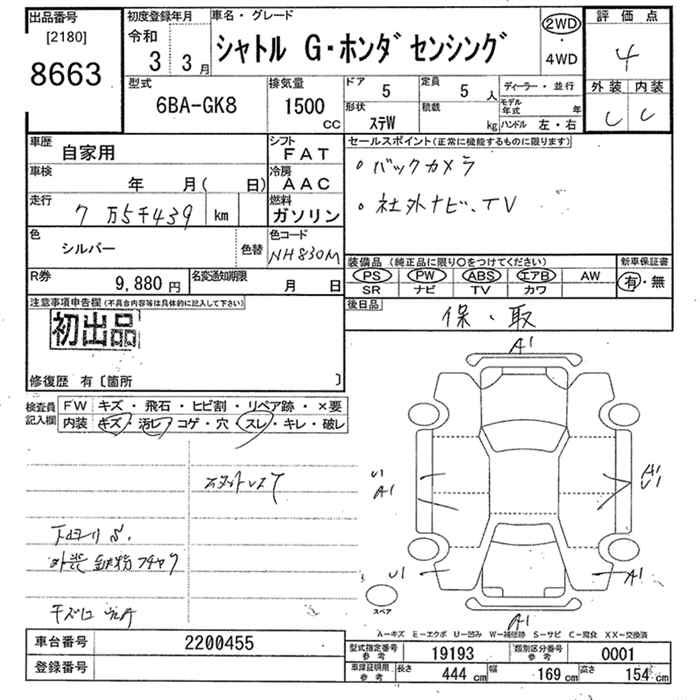 出品番号
[2180]
8663
初度登録年月
令和
3 3月
車名・グレード
シャトル G・ホンダセンシング
2WD
・
4WD
評価点
4
外装 内装
C C
型式
6BA-GK8
排気量
1500
CC
ドア
5
定員
5 人
形状
ステW
積載
kg
ディーラー・並行
モデル年式 年
ハンドル 左・右
車歴
自家用
車検
年 月( 日)
走行
7万5千439 km
色
シルバー
色替
R券
9,880 円
名変通知期限
月 日
シフト
FAT
冷房
AAC
燃料
ガソリン
色コード
NH830M
セールスポイント(正常に機能するものに限ります)
。バックカメラ
。社外ナビ、TV
装備品(純正品に限り〇をつけてください)
PS PW ABS エアB AW
SR ナビ TV カワ
新車保証書
有・無
後日品
保・取
注意事項申告欄(不具合内容等は具体的に記入して下さい)
初出品
修復歴 有〔箇所 〕
検査員記入欄
FW キズ・飛石・ヒビ割・リペア跡・×要
内装 キズ・汚レ・コゲ・穴・スレ・キレ・破レ
下回りS.
外装鉄粉
A1
U1
A1
A1
U1
U1
A1
A1
スペア
A−キズ E−エクボ U−凹み W−補修跡 S−サビ C−腐食 XX−交換済
車台番号
2200455
登録番号
型式指定番号参考
19193
類別区分番号参考
0001
車検証明用参考
長さ 444 cm 幅 169 cm 高さ 154 cm